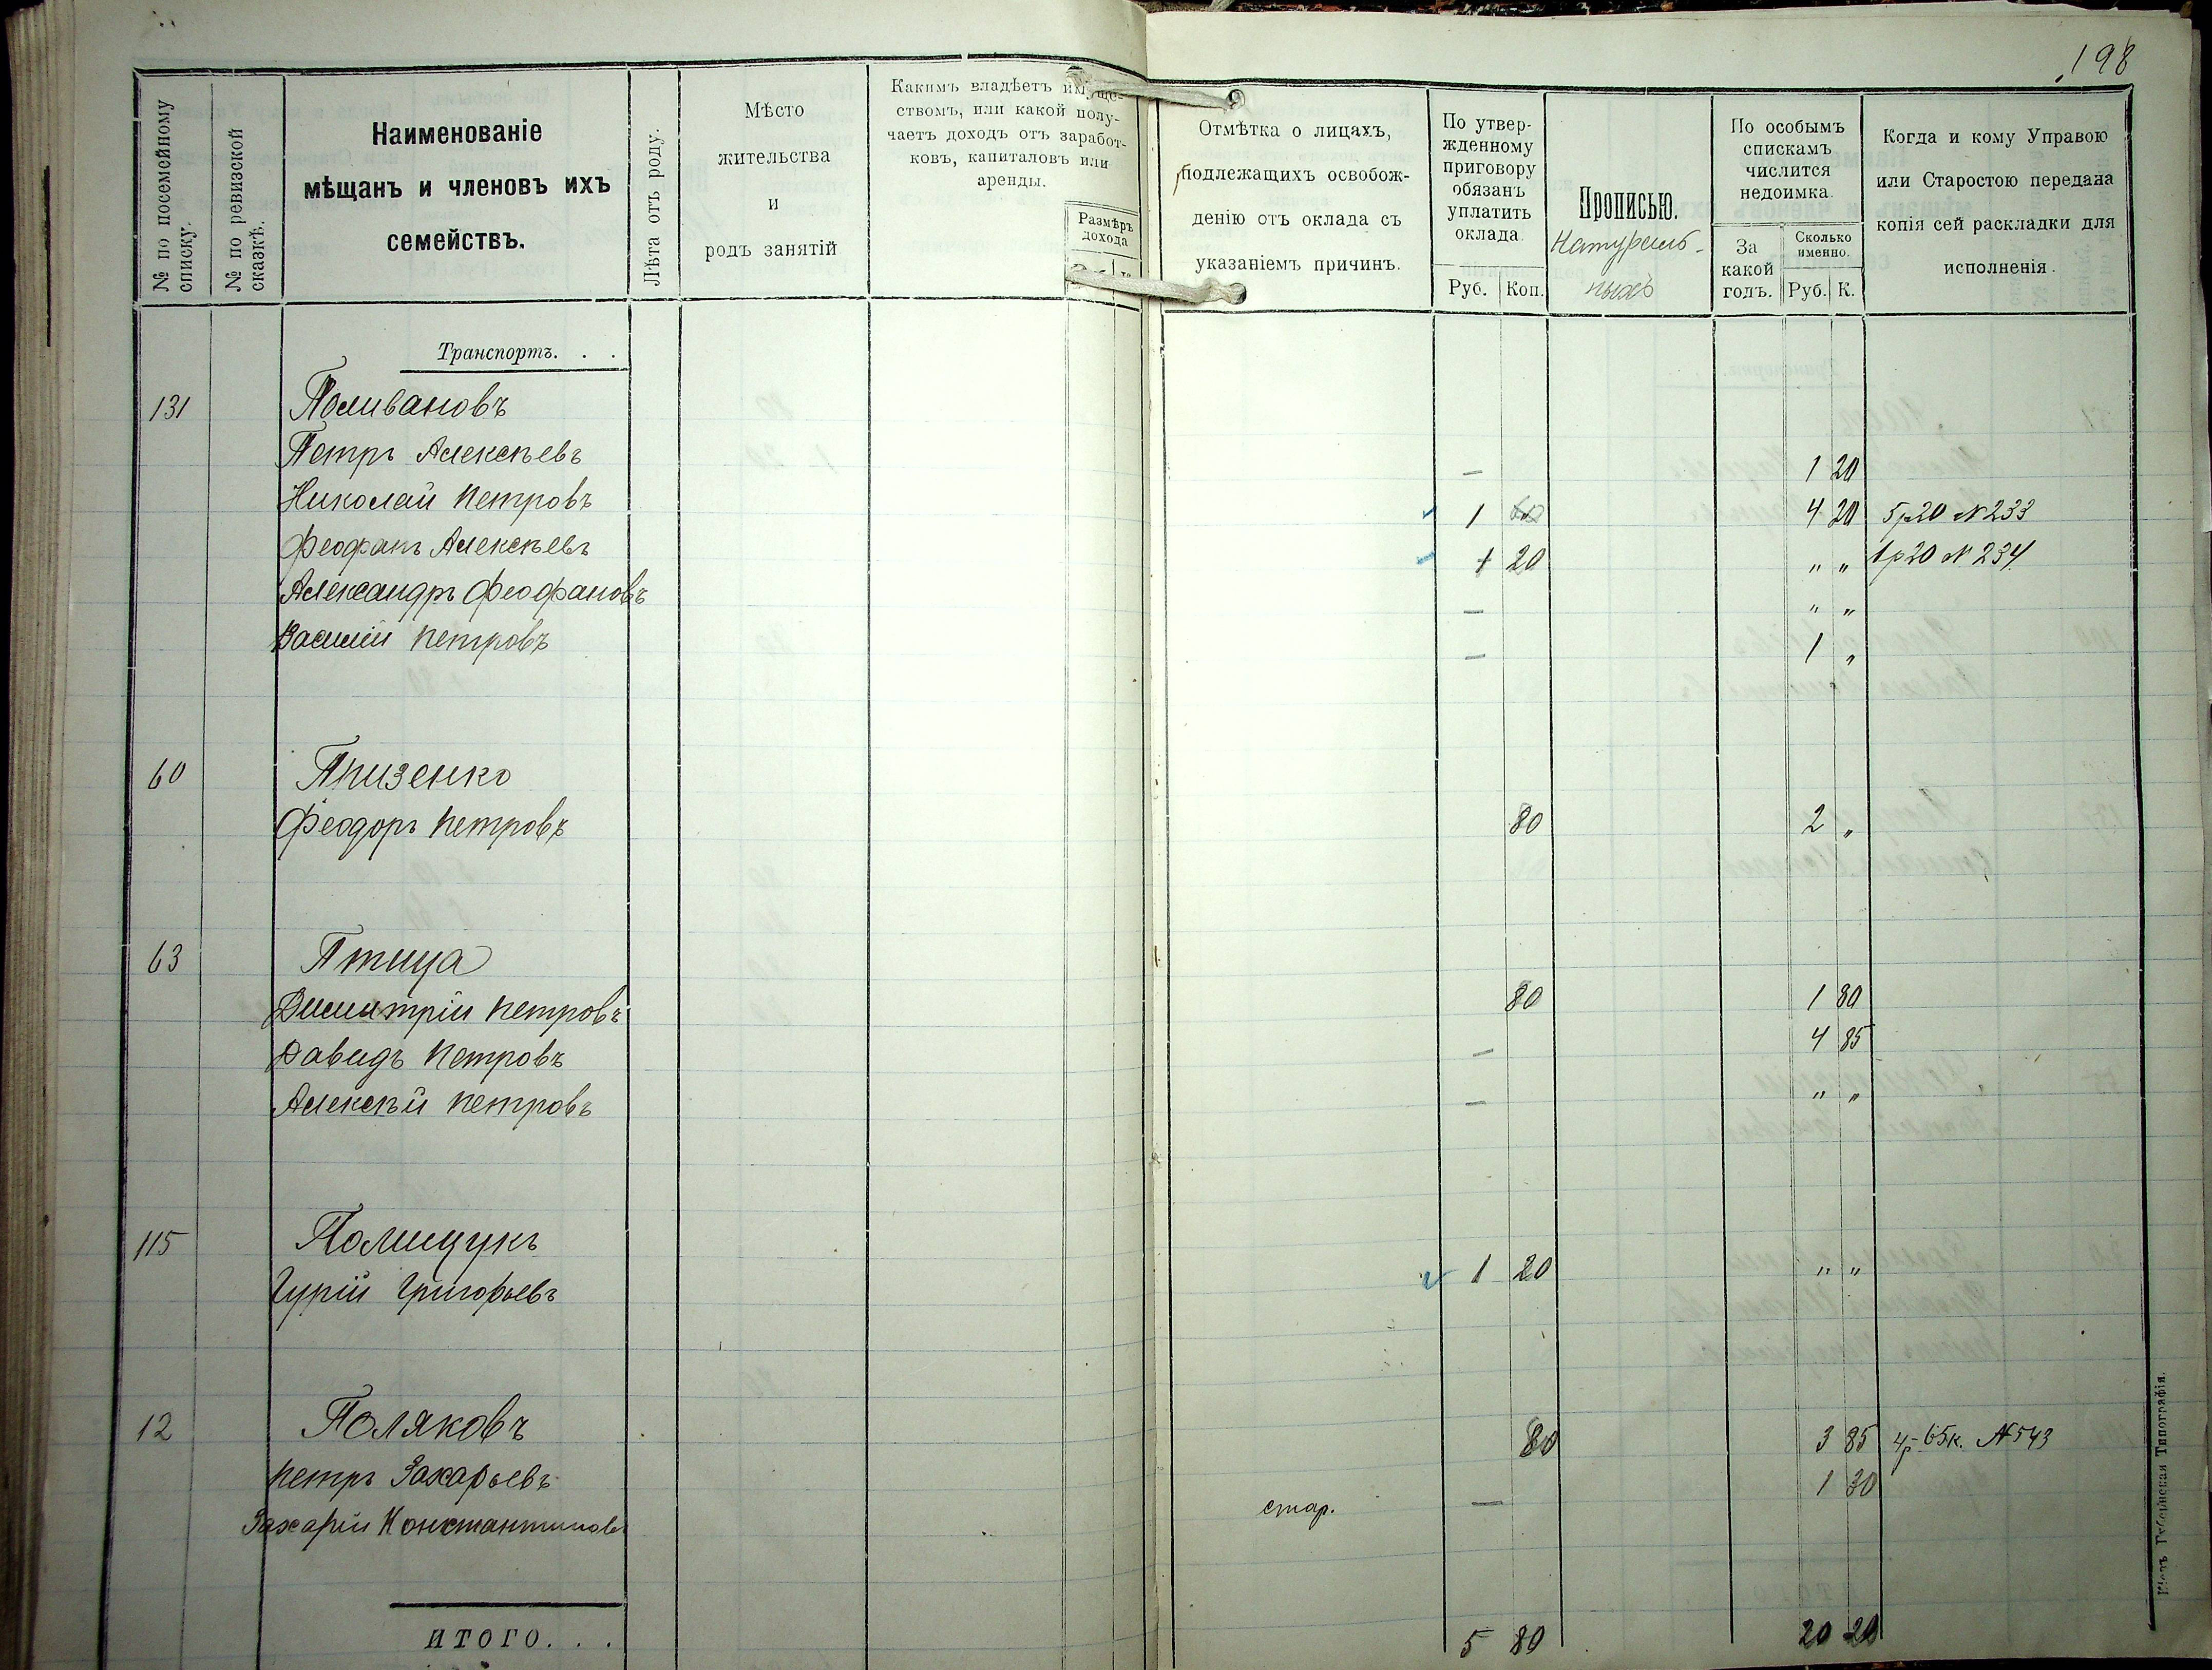 198
№ по посемейному списку.
№ по ревизской сказкѣ.
Наименованіе
мѣщанъ и членовъ ихъ
семействъ.
Лѣта отъ роду.
Мѣсто
жительства
и
родъ занятій
Какимъ владѣетъ имуще-
ствомъ, или какой полу-
чаетъ доходъ отъ заработ-
ковъ, капиталовъ или
аренды.
Размѣръ
дохода
Отмѣтка о лицахъ,
подлежащихъ освобож-
денію отъ оклада съ
указаніемъ причинъ.
По утвер-
жденному
приговору
обязанъ
уплатить
оклада
Руб. Коп.
Прописью.
Натураль-
ныхъ
По особымъ
спискамъ
числится
недоимка.
За
какой
годъ.
Сколько
именно.
Руб. К.
Когда и кому Управою
или Старостою передана
копія сей раскладки для
исполненія.
Транспортъ. . .
131 Поливановъ
Петръ Алексѣевъ — 1 20
Николай Петровъ 1 4 20 5р20 №233
Феофанъ Алексѣевъ 1 20 " " 1р20 №234
Александръ Феофановъ — " "
Василій Петровъ — 1 "
60 Призенко
Феодоръ Петровъ 80 2 "
63 Птица
Димитрій Петровъ 80 1 80
Давидъ Петровъ — 4 85
Алексѣй Петровъ — " "
115 Полищукъ
Гурій Григорьевъ 1 20 " "
12 Поляковъ
Петръ Захарьевъ 80 3 85 4р-65к. №543
Захарій Константиновъ стар. — 1 30
ИТОГО. . . 5 80 20 20
Кіевъ Губернская Типографія.